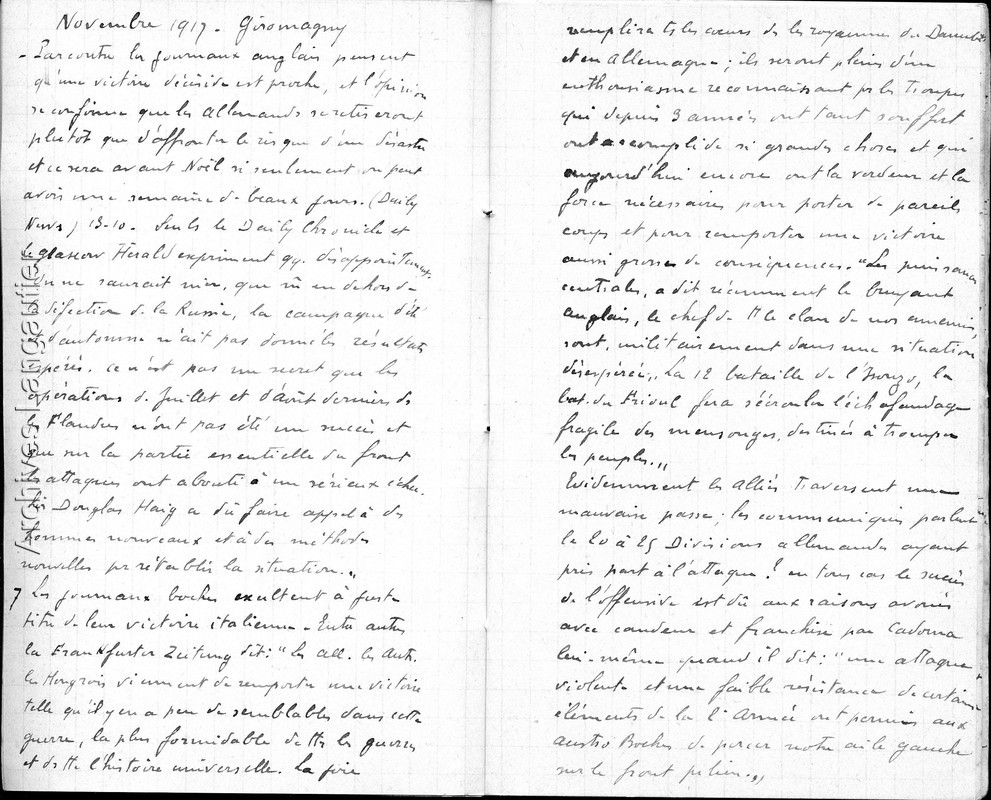 Novembre 1917 - Giromagny
- Par contre les journaux anglais pensent
qu'une victoire décisive est proche, et l'opinion
se confirme que les Allemands se retireront
plutôt que d'affronter le risque d'un désastre
et ce sera avant Noël si seulement on peut
avoir une semaine de beaux jours. (Daily
News) 13-10. Seuls le Daily Chronicle et
le Glascow Herald expriment qq. désappointement.
On ne saurait nier, que en dehors de
la défection de la Russie, la campagne d'été
et d'automne n'ait pas donné les résultats
espérés. Ce n'est pas un secret que les
opérations de Juillet et d'août derniers ds
les Flandres n'ont pas été un succès et
que sur la partie essentielle du front
les attaques ont abouti à un sérieux échec.
Sir Douglas Haig a dû faire appel à des
hommes nouveaux et à des méthodes
nouvelles pr rétablir la situation.„
7 Les journaux boches exultent à juste
titre de leur victoire italienne - Entre autres
la Frankfurter Zeitung dit: "les All. les Autr.
les Hongrois viennent de remporter une victoire
telle qu'il y en a peu de semblables dans cette
guerre, la plus formidable de ttes les guerres
et de tte l'histoire universelle. La joie
remplira ts les cœurs ds les royaumes du Danube
et en Allemagne; ils seront pleins d'un
enthousiasme reconnaissant pr les Troupes
qui depuis 3 années ont tant souffert
ont accompli de si grandes choses et qui
aujourd'hui encore ont la verdeur et la
force nécessaires pour porter de pareils
coups et pour remporter une victoire
aussi grosse de conséquences. "Les puissances
centrales, a dit récemment le bruyant
anglais, le chef de tt le clan de nos ennemis,
sont, militairement dans une situation
désespérée„. La 12 bataille de l'Isonzo, la
bat. du Frioul fera s'écrouler l'échafaudage
fragile des mensonges, destinés à tromper
les peuples.„
Evidemment les Alliés traversent une
mauvaise passe; les communiqués parlent
de 20 à 25 Divisions allemandes ayant
pris part à l'attaque? en tous cas le succès
de l'offensive est dû aux raisons avouées
avec candeur et franchise par Cadorna
lui-même quand il dit: "une attaque
violente et une faible résistance de certains
éléments de la 2e Armée ont permis aux
austro Boches de percer notre aile gauche
sur le front julien.„